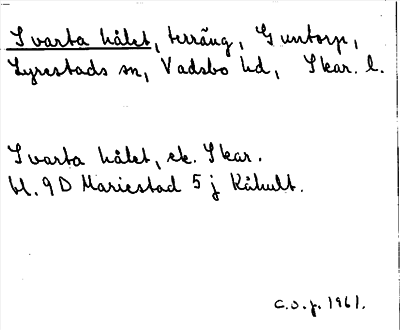 Svarta hålet, terräng, Guntorp,
Lyrestads sn, Vadsbo hd, Skar. l.
Svarta hålet, ek. Skar.
bl. 9D Mariestad 5 j Kåhult.
C.O.J. 1961.